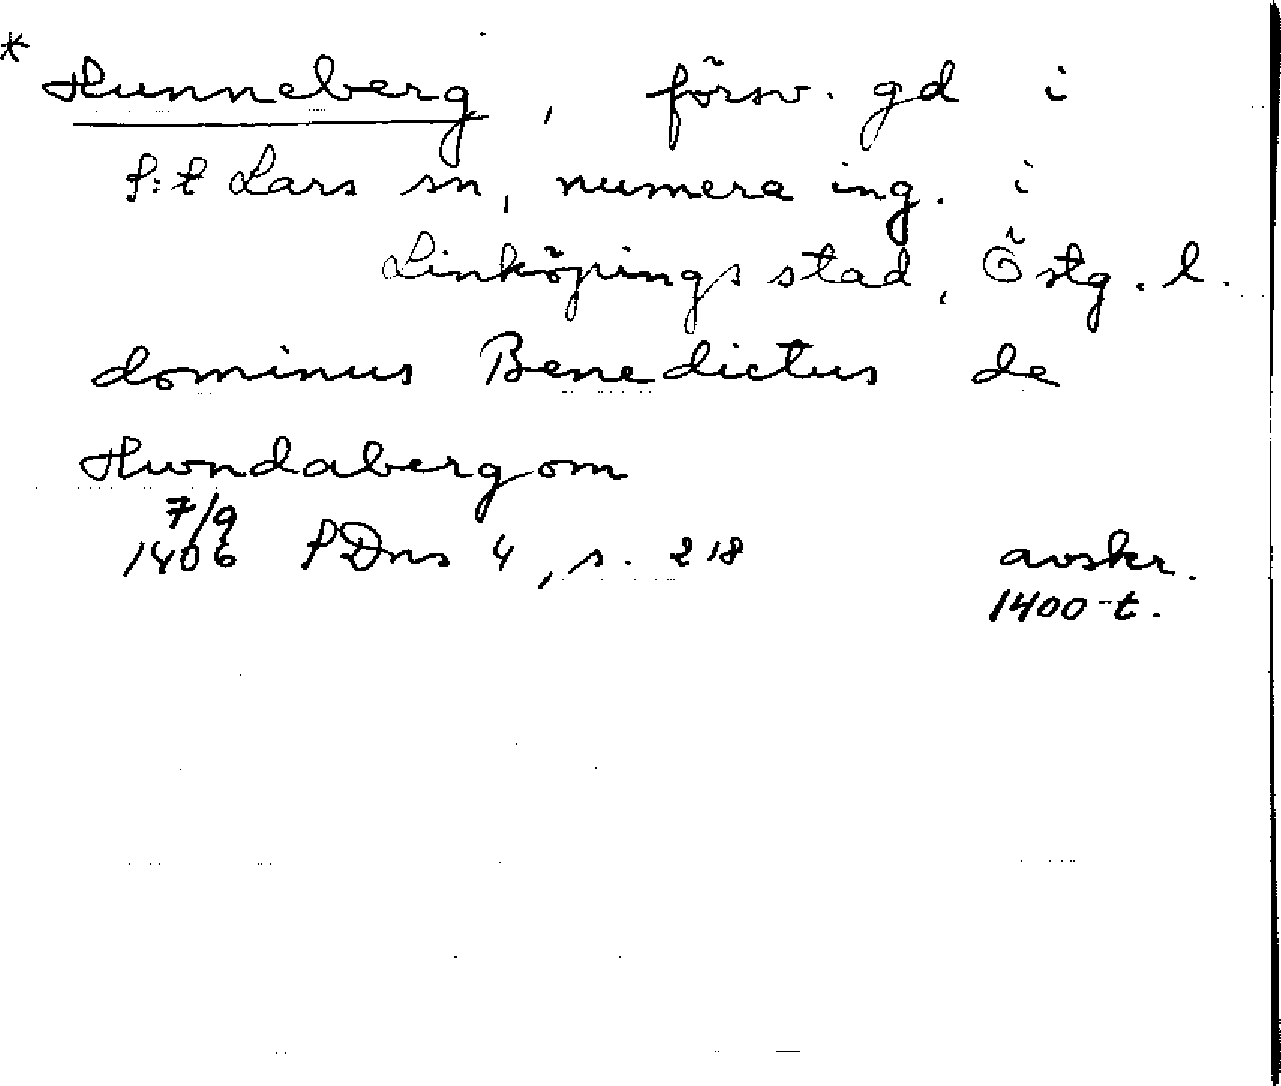 * Hunneberg, försv. gd i
S:t Lars sn, numera ing. i
Linköpings stad, Östg. l.
dominus Benedictus de
Hwndabergom
7/9
1406 SDns 4, s. 218 avskr.
1400-t.